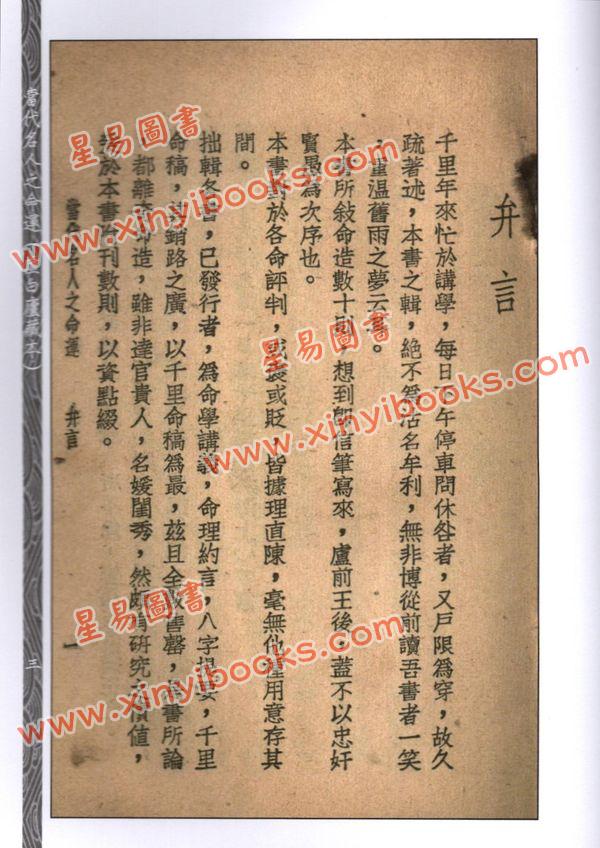 弁言
千里年來忙於講學，每日下午停車問休咎者，又戶限爲穿，故久
疏著述，本書之輯，絕不爲沽名牟利，無非博從前讀吾書者一笑
，重温舊雨之夢云耳。
本書所敍命造數十則，想到卽信筆寫來，盧前王後，蓋不以忠奸
賢愚爲次序也。
本書對於各命評判，或褒或貶，皆據理直陳，毫無他種用意存其
間。
拙輯各書，已發行者，爲命學講義，命理約言，八字提要，千里
命稿，其銷路之廣，以千里命稿爲最，茲且全數售罄，本書所論
，都離奇命造，雖非達官貴人，名媛閨秀，然頗有研究之價值，
於本書 刊數則，以資點綴。
當代名人之命運 弁言 一
當代名人之命運 廬藏本） 三
星易圖書
www.xinyibooks.com
星易圖書
www.xinyibooks.com
星易圖書
www.xinyibooks.com
星易圖書
www.xinyibooks.com